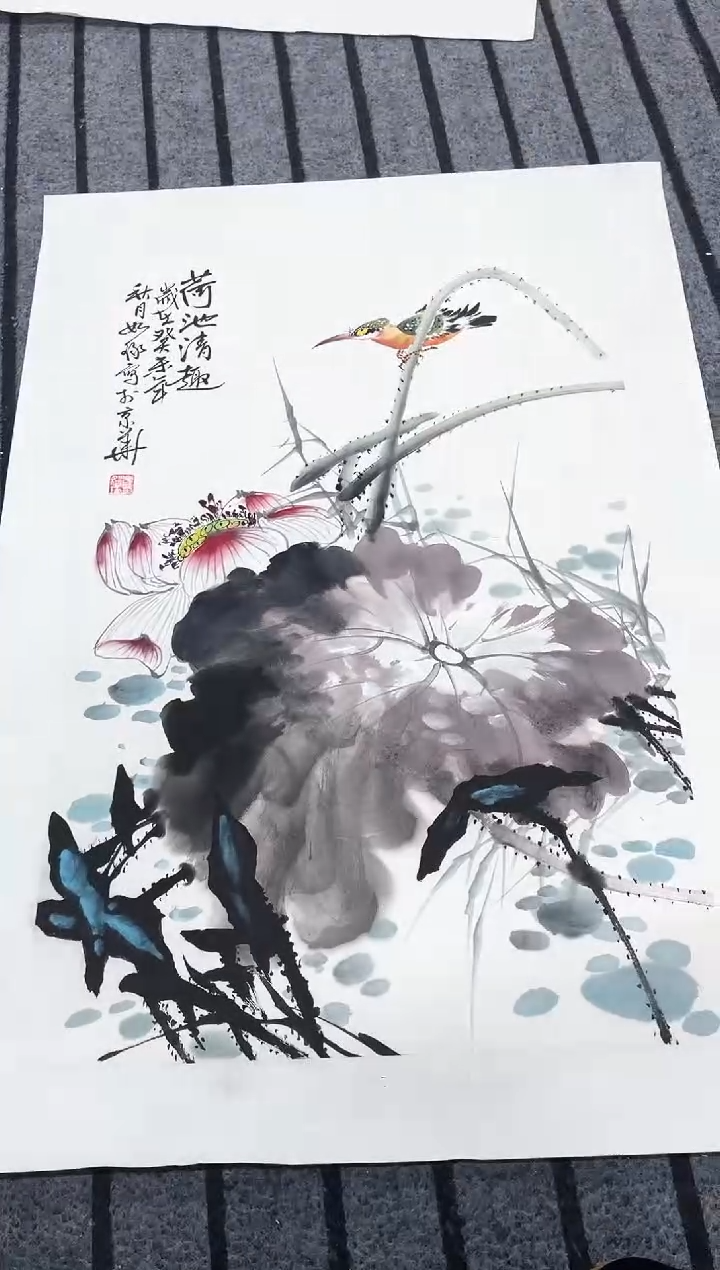 荷池清趣
歲在癸未年
秋月如寫於京華